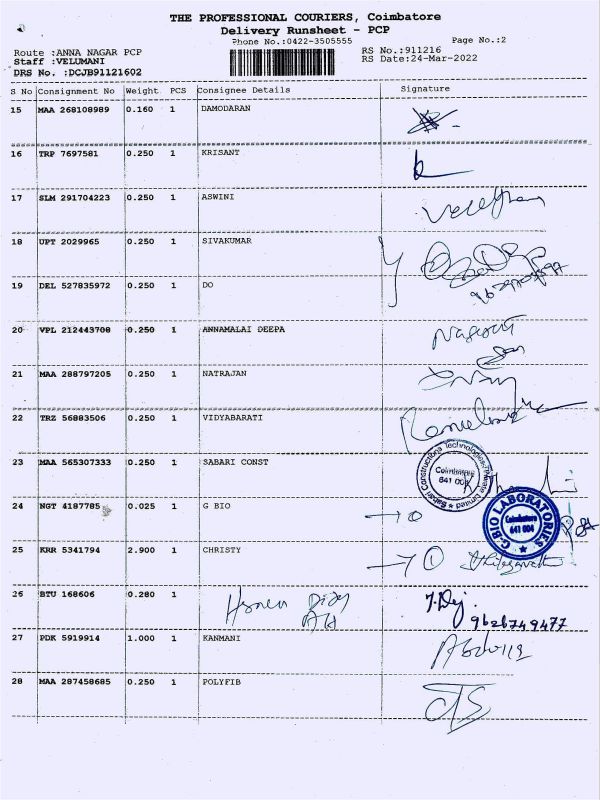 THE PROFESSIONAL COURIERS, Coimbatore
Delivery Runsheet - PCP
Phone No.:0422-3505555
Page No.:2
Route :ANNA NAGAR PCP
RS No.:911216
Staff :VELUMANI
RS Date:24-Mar-2022
DRS No. :DCJB91121602
S No Consignment No Weight PCS Consignee Details Signature
15 MAA 268108989 0.160 1 DAMODARAN
16 TRP 7697581 0.250 1 KRISANT
17 SLM 291704223 0.250 1 ASWINI
18 UPT 2029965 0.250 1 SIVAKUMAR
19 DEL 527835972 0.250 1 DO
20 VPL 212443708 0.250 1 ANNAMALAI DEEPA
21 MAA 288797205 0.250 1 NATRAJAN
22 TRZ 56883506 0.250 1 VIDYABARATI
23 MAA 565307333 0.250 1 SABARI CONST
Sabari Constructions Technologies Private Limited
Coimbatore
641 004
24 NGT 4187785 0.025 1 G BIO
G-BIO LABORATORIES
Coimbatore
641 004
25 KRR 5341794 2.900 1 CHRISTY
1
26 BTU 168606 0.280 1
9626749477
27 PDK 5919914 1.000 1 KANMANI
28 MAA 287458685 0.250 1 POLYFIB